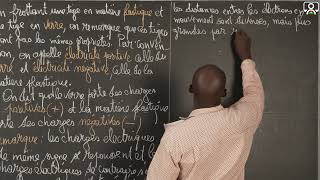 en frottant une tige en matière plastique et
une tige en verre, on remarque que ces tiges
ont pas les mêmes propriétés. Par conven
on, on appelle électricité positive celle du
verre et électricité négative celle de la
matière plastique.
On dit que le verre porte des charges
positives (+) et la matière plastique
porte des charges négatives (-)
remarque : les charges électriques
de même signe se repoussent et l
charges électriques de contraire s
les distances entre les électrons e
mouvement sont diverses, mais plus
grandes par r